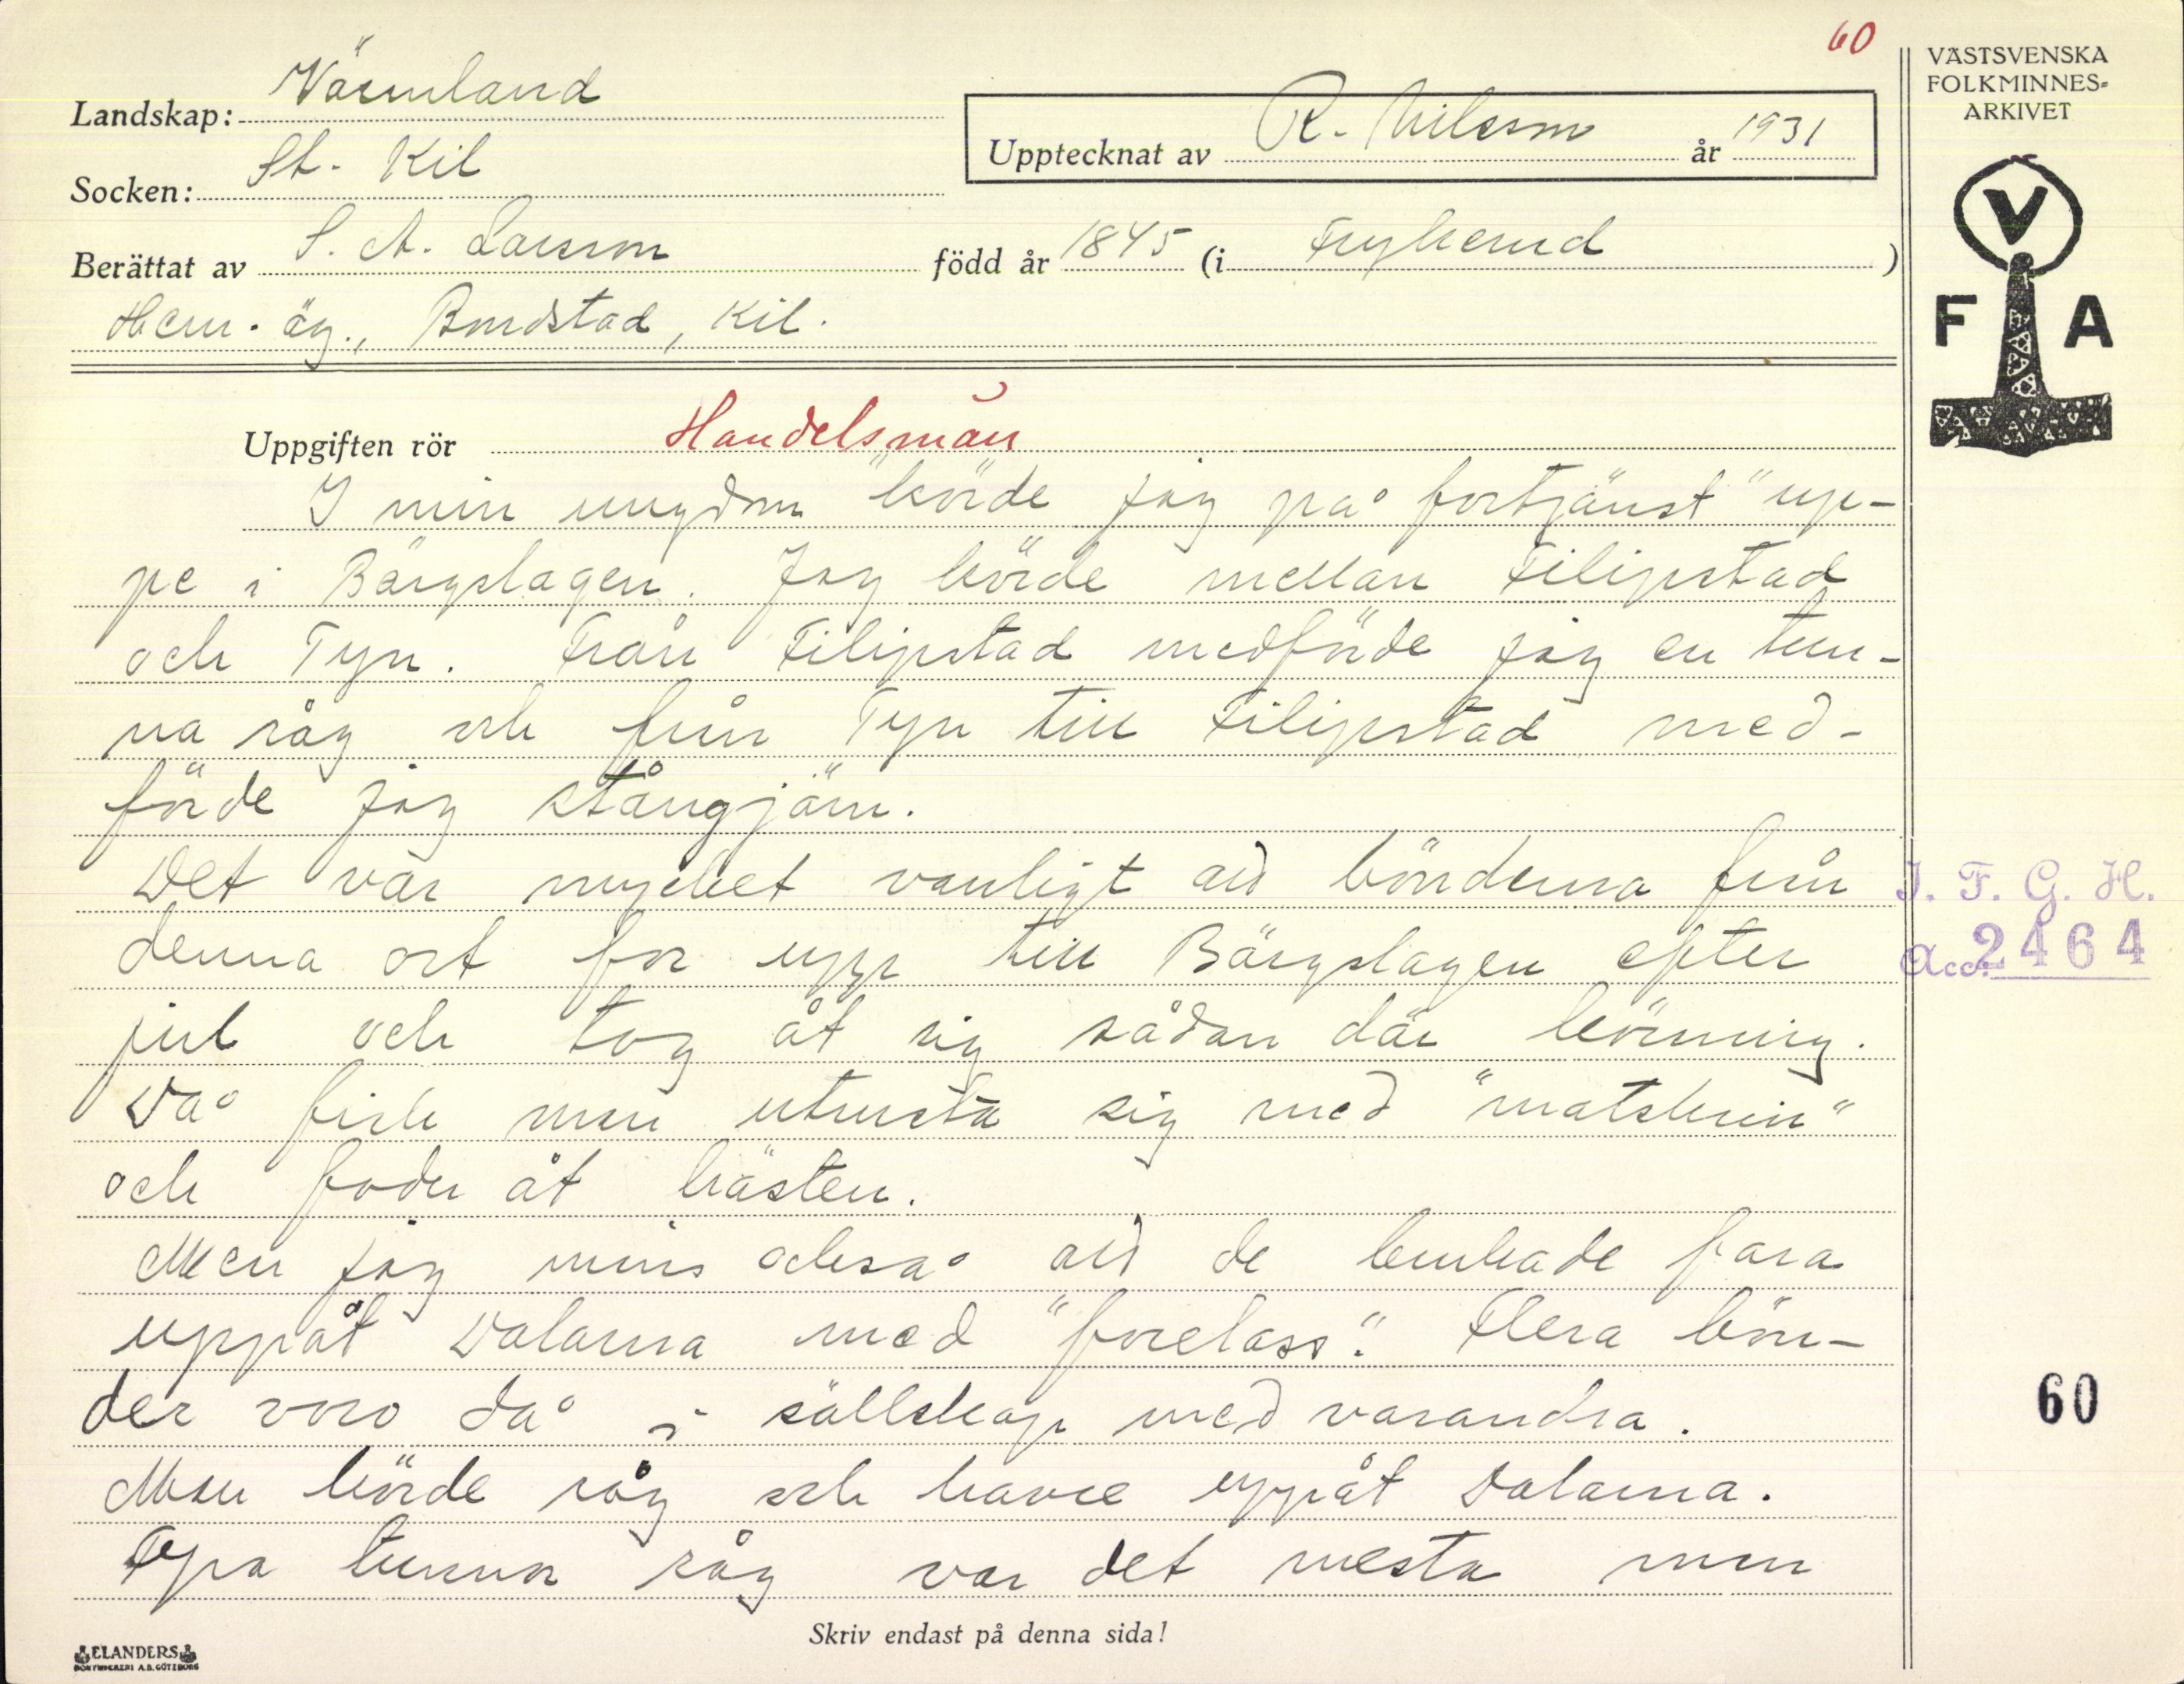 60
VÄSTSVENSKA
FOLKMINNES-
ARKIVET
Landskap: Värmland
Upptecknat av R. Nilsson år 1931
Socken: St. Kil
Berättat av S. A. Larsson född år 1845 (i Frykerud)
Hem. äg., Bondstad, Kil.
V
F A
Uppgiften rör Handelsmän
I min ungdom "körde jag på fortjänst" up-
pe i Bärgslagen. Jag körde mellan Filipstad
och Tyn. Från Filipstad medförde jag en tun-
na råg och från Tyn till Filipstad med-
förde jag stångjärn.
Det var mycket vanligt att bönderna från
denna ort for upp till Bärgslagen efter
jul och tog åt sig sådan där körning.
Då fick man utrusta sig med "matskrin"
och foder åt hästen.
Men jag mins också att de brukade fara
uppåt Dalarna med "forelass". Flera bön-
der voro då i sällskap med varandra.
Man körde råg och havre uppåt Dalarna.
Fyra tunnor råg var det mesta man
I. F. G. H.
Acc. 2464
60
Skriv endast på denna sida!
ELANDERS
BOKTRYCKERI A.B. GÖTEBORG